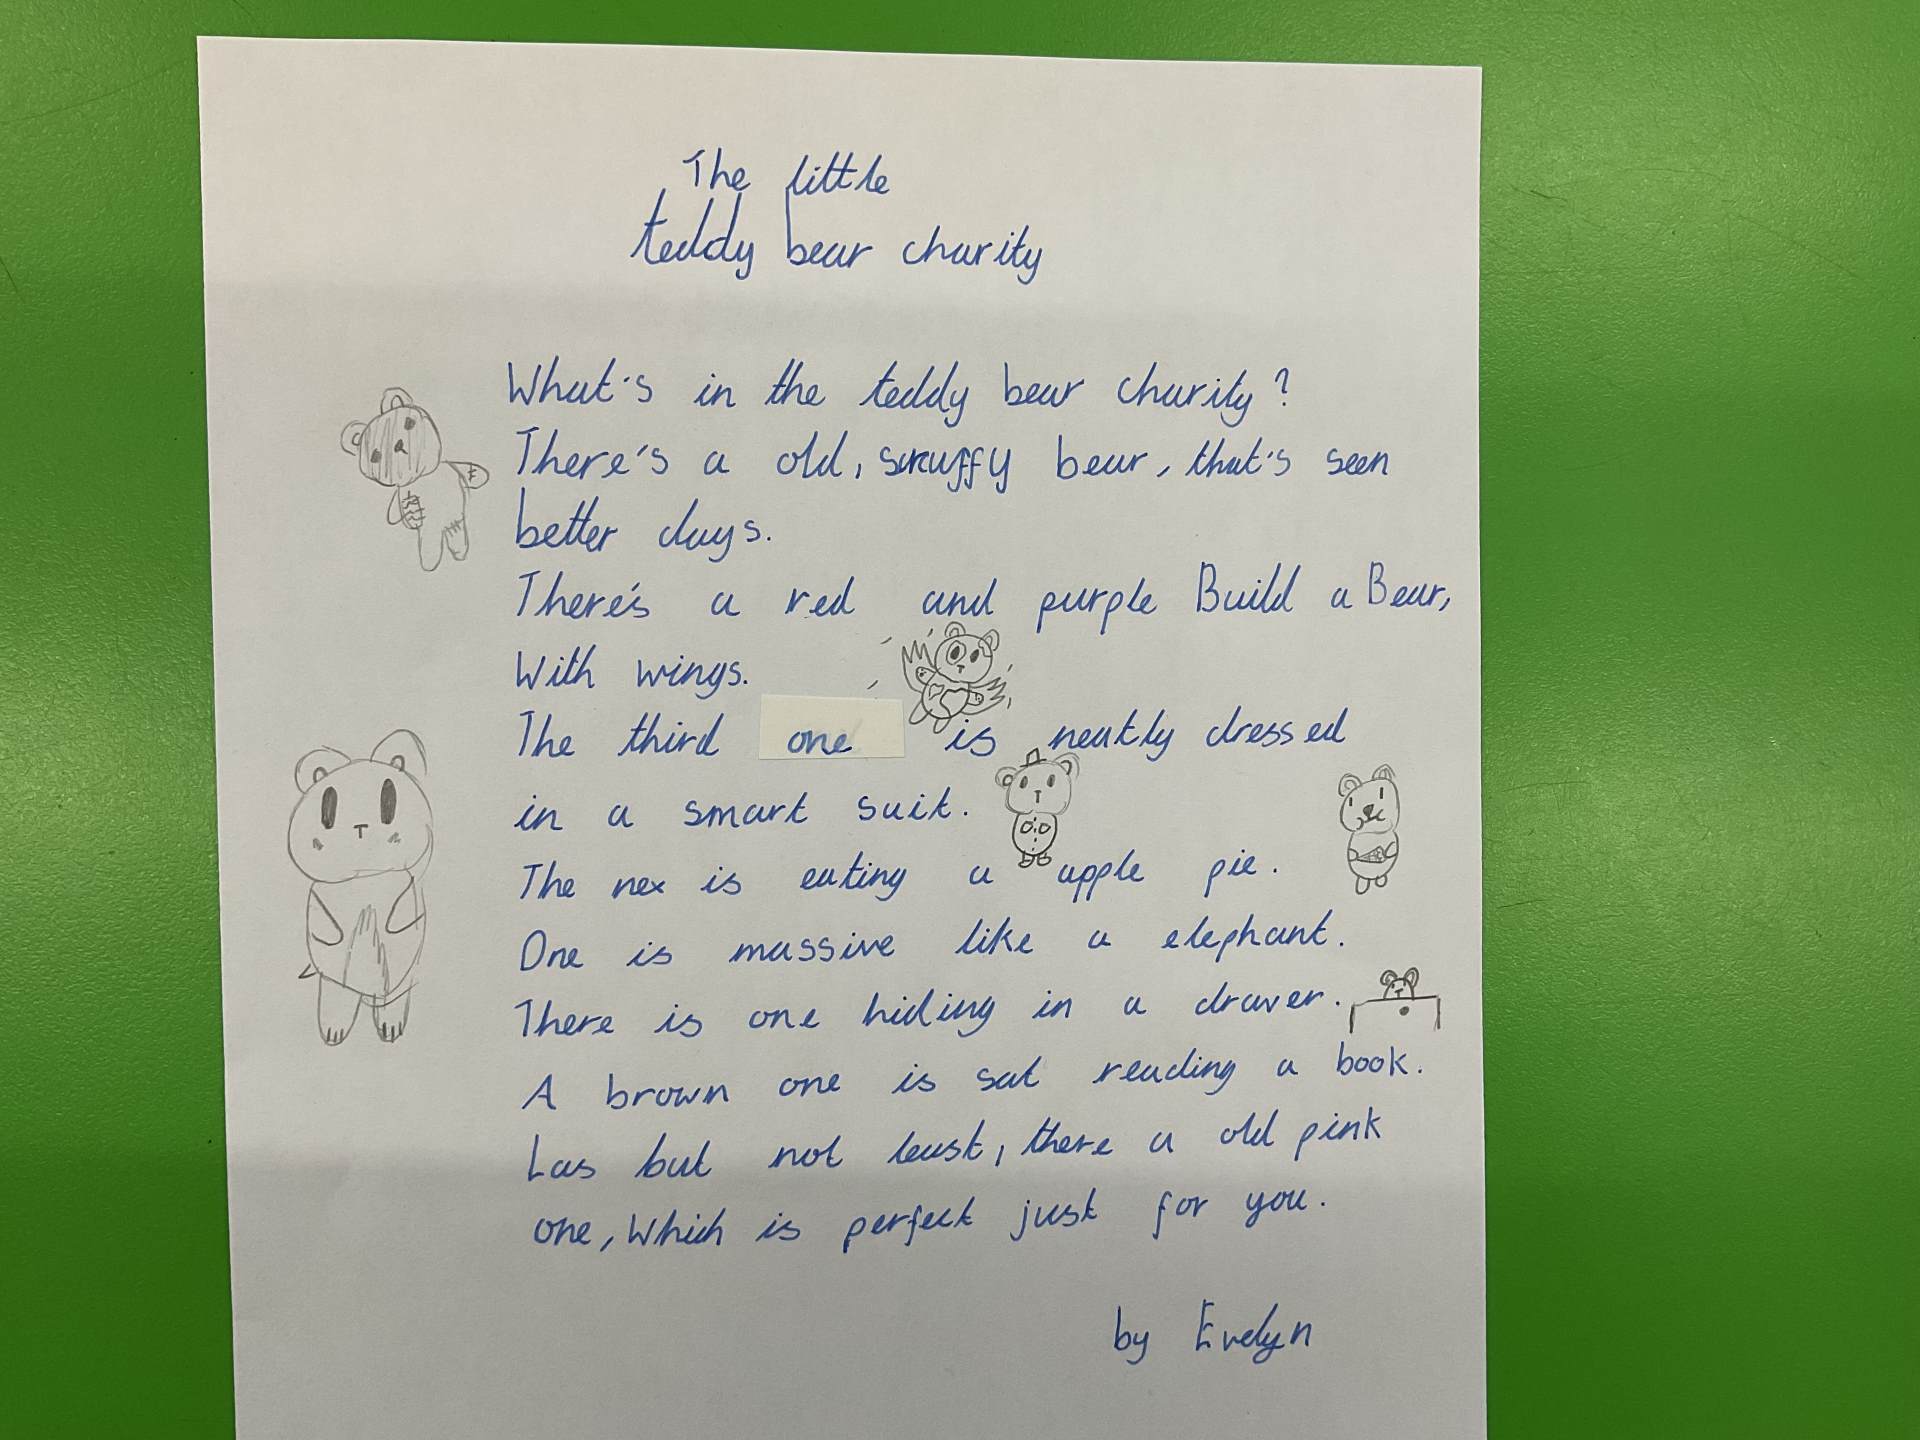 The little
teddy bear charity
What's in the teddy bear charity?
There's a old, scruffy bear, that's seen
better days.
There's a red and purple Build a Bear,
With wings.
The third one is neatly dressed
in a smart suit.
The nex is eating a apple pie.
One is massive like a elephant.
There is one hiding in a draver.
A brown one is sat reading a book.
Las but not least, there a old pink
one, Which is perfect just for you.
by Evelyn